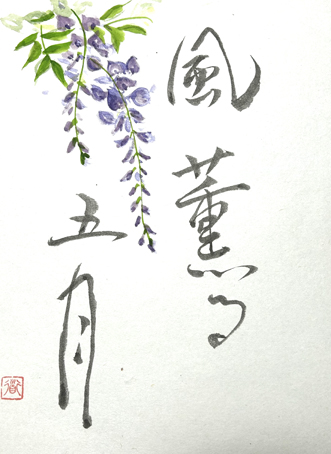 風薫る
五月